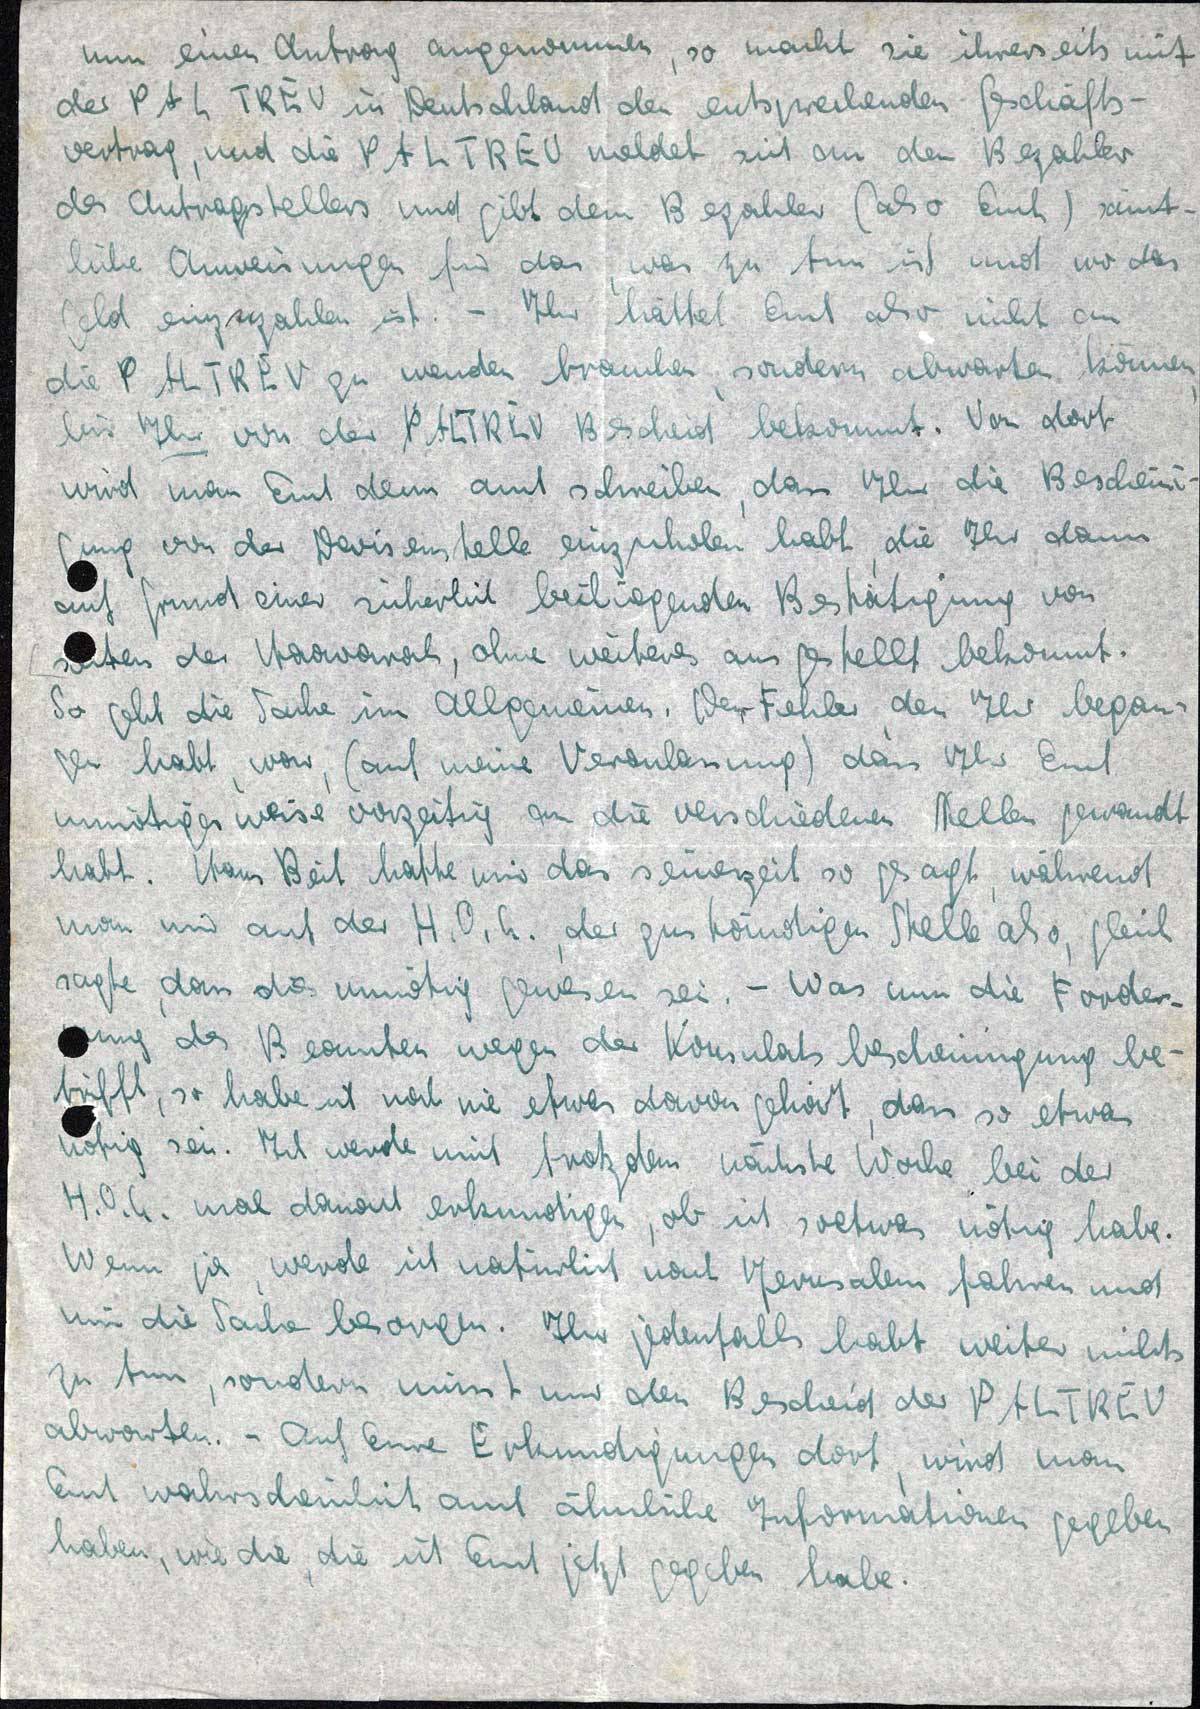 nun einen Antrag angenommen, so macht sie ihrerseits mit
der PALTREU in Deutschland den entsprechenden Geschäfts-
vertrag, und die PALTREU meldet sich an den Bezahler
des Antragstellers und gibt dem Bezahler (also Euch) sämt-
liche Anweisungen für das, was zu tun ist und wo das
Geld einzuzahlen ist. - Ihr hättet Euch also nicht an
die PALTREU zu wenden brauchen, sondern abwarten können,
bis Ihr von der PALTREU Bescheid bekommt. Von dort
wird man Euch dann auch schreiben, dass Ihr die Bescheini-
gung von der Devisenstelle einzuholen habt, die Ihr dann
auf Grund einer sicherlich beiliegenden Bestätigung von
seiten der Haavarah, ohne weiteres ausgestellt bekommt.
So geht die Sache im Allgemeinen. Der Fehler, den Ihr began-
gen habt, war, (auf meine Veranlassung) dass Ihr Euch
unnötigerweise vorzeitig an die verschiedenen Stellen gewandt
habt. Hans Beit hatte mir das seinerzeit so gesagt, während
man mir auf der H.O.G., der zuständigen Stelle also, gleich
sagte, dass das unnötig gewesen sei. - Was nun die Forder-
ung des Beamten wegen der Konsulatsbescheinigung be-
trifft, so habe ich noch nie etwas davon gehört, dass so etwas
nötig sei. Ich werde mich trotzdem nächste Woche bei der
H.O.G. mal danach erkundigen, ob ich soetwas nötig habe.
Wenn ja, werde ich natürlich nach Jerusalem fahren und
mir die Sache besorgen. Ihr jedenfalls habt weiter nichts
zu tun, sondern müsst nur den Bescheid der PALTREU
abwarten. - Auf Eure Erkundigungen dort, wird man
Euch wahrscheinlich auch ähnliche Informationen gegeben
haben, wie die, die ich Euch jetzt gegeben habe.